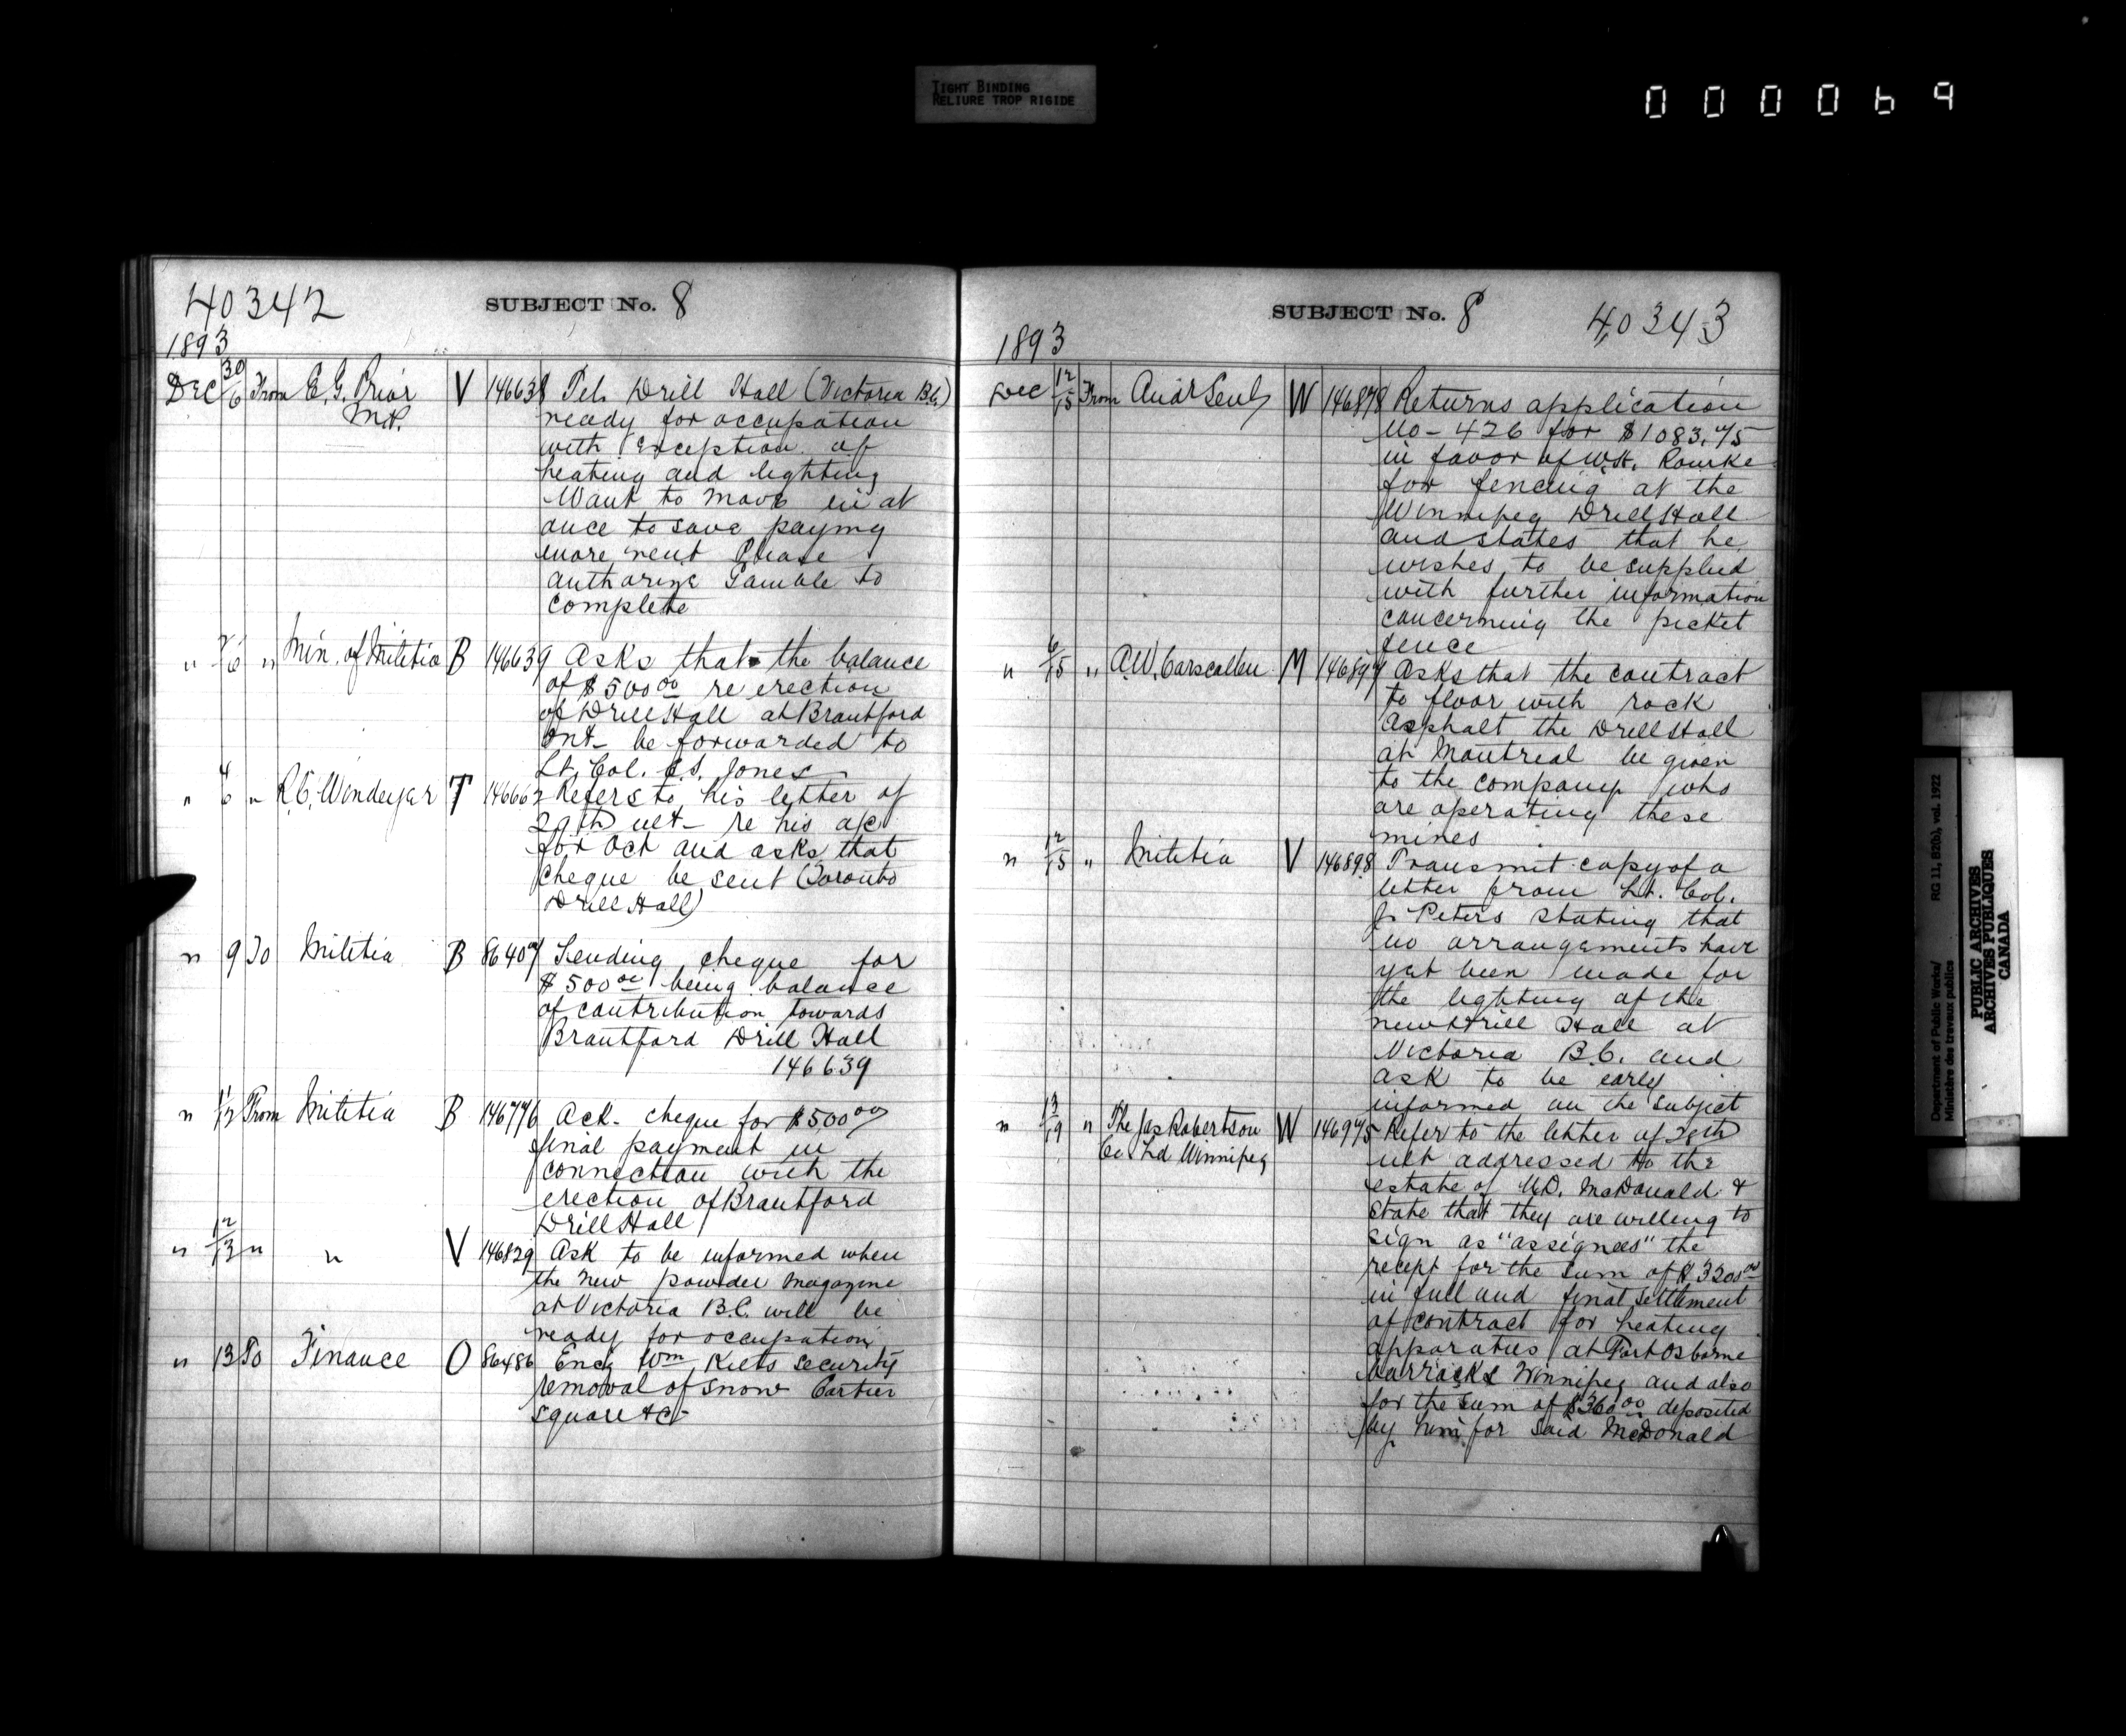 TIGHT BINDING
RELIURE TROP RIGIDE
000069
40342
SUBJECT No. 8
1893
Dec 30/6 From E. G. Prior V 146638 Tel. Drill Hall (Victoria B.C.)
M.P. ready for occupation
with exception of
heating and lighting
Want to move in at
once to save paying
more rent Please
authorize Gamble to
complete
" 2/6 " Min. of Militia B 146639 Asks that the balance
of $500.00 re erection
of Drill Hall at Brantford
Ont- be forwarded to
Lt. Col. C.S. Jones
" 4/6 " R.C. Windeyer T 146662 Refers to his letter of
29th ult- re his a/c
for Oct and asks that
cheque be sent (Toronto
Drill Hall)
" 9 To Militia B 86407 Sending cheque for
$500.00 being balance
of contribution towards
Brantford Drill Hall
146639
" 11/12 From Militia B 146776 Ack. cheque for $500.00
final payment in
connection with the
erection of Brantford
Drill Hall
" 12/13 " " V 146829 Ask to be informed when
the new powder magazine
at Victoria B.C. will be
ready for occupation
" 13 To Finance O 86486 Encg Wm security
removal of snow Cartier
Square &c-
SUBJECT No. 8
40343
1893
Dec 12/15 From Aud Genl W 146878 Returns application
No- 426 for $1083.75
in favor of W.H. Rourke
for fencing at the
Winnipeg Drill Hall
and states that he
wishes to be supplied
with further information
concerning the picket
fence
" 6/15 " A.W. Carscallen M 146897 Asks that the contract
to floor with rock
asphalt the Drill Hall
at Montreal be given
to the company who
are operating these
mines
" 12/15 " Militia V 146898 Transmit copy of a
letter from Lt. Col.
J. Peters stating that
no arrangements have
yet been made for
the lighting of the
new Drill Hall at
Victoria B.C. and
ask to be early
informed on the subject
" 13/19 " The Jas Robertson W 146975 Refer to the letter of 28th
Co Ltd Winnipeg ult addressed to the
estate of McDonald &
state that they are willing to
sign as "assignees" the
recept for the sum of $3200.00
in full and final settlement
of contract for heating
apparatus at Fort Osborne
barracks Winnipeg and also
for the sum of $360.00 deposited
by him for said McDonald
Department of Public Works/ RG 11, B2(b), vol. 1922
Ministère des travaux publics
PUBLIC ARCHIVES
ARCHIVES PUBLIQUES
CANADA